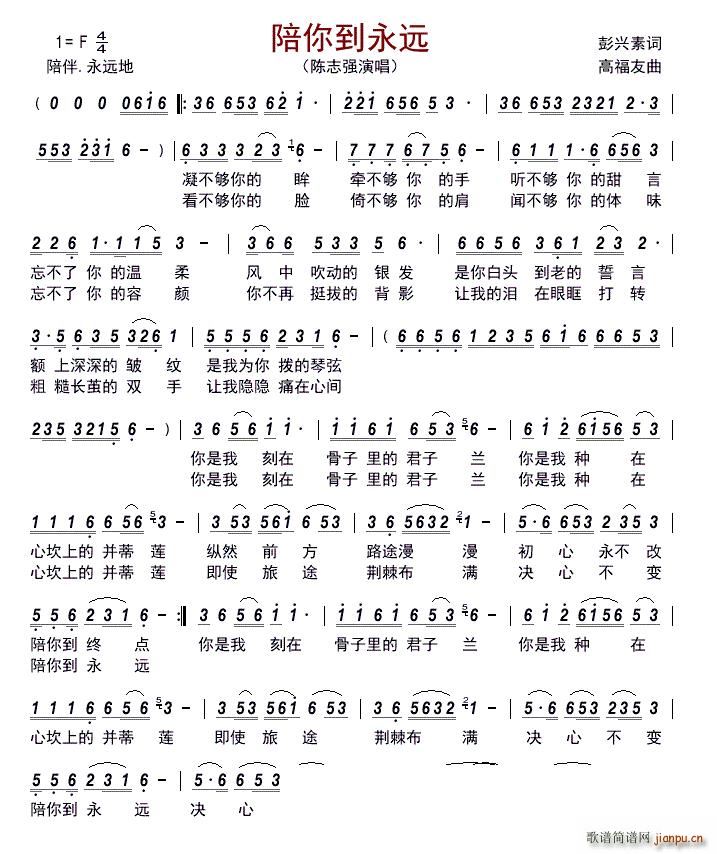 陪你到永远
1= F 4/4
彭兴素词
陪伴.永远地
（陈志强演唱）
高福友曲
( 0 0 0 0616 |: 36 653 62 1 · | 221 656 5 3 · | 36 653 2321 2·3 |
553 231 6 – ) | 6 3 3 3 2 3 1 6 – | 7 7 7 6 7 5 6 – | 6 1 1 1 1· 6 656 3 |
凝不够你的 眸 牵不够 你 的手 听不够 你 的甜 言
看不够你的 脸 倚不够 你 的肩 闻不够 你 的体 味
2 2 6 1· 1 1 5 3 – | 3 6 6 5 3 3 5 6 – | 6 6 5 6 3 6 1 2 3 2· |
忘不了 你 的温 柔 风 中 吹动的 银 发 是你白头 到老的 誓 言
忘不了 你 的容 颜 你不再 挺拔的 背 影 让我的泪 在眼眶 打 转
3 · 5 6 3 5 3 2 6 1 | 5 5 5 6 2 3 1 6 – | ( 6 6 5 6 1 2 3 5 6 1 6 6 5 6 |
额 上深深的 皱 纹 是我为你 拨的琴弦
粗 糙长茧的 双 手 让我隐隐 痛在心间
235 3215 6 – ) | 3 6 5 6 1 1 · | 1 1 6 1 5 6 5 3 5 6 – | 6 1 2 6 1 5 6 5 3 |
你是我 刻在 骨子 里的 君子 兰 你是我 种 在
你是我 刻在 骨子 里的 君子 兰 你是我 种 在
1 1 1 6 6 5 6 5 3 – | 3 5 3 5 6 1 6 5 3 | 3 6 5 6 3 2 2 1 – | 5 · 6 6 5 3 2 3 5 3 |
心坎上的 并蒂 莲 纵然 前 方 路途漫 漫 初 心 永不 改
心坎上的 并蒂 莲 即使 旅 途 荆棘布 满 决 心 不 变
5 5 6 2 3 1 6 – :| 3 6 5 6 1 1 · | 1 1 6 1 6 5 3 5 6 – | 6 1 2 6 1 5 6 5 3 |
陪你到 终 点 你是我 刻在 骨子里的 君子 兰 你是我 种 在
陪你到 永 远
1 1 1 6 6 5 6 5 3 – | 3 5 3 5 6 1 6 5 3 | 3 6 5 6 3 2 2 1 – | 5 · 6 6 5 3 2 3 5 3 |
心坎上的 并蒂 莲 即使 旅 途 荆棘布 满 决 心 不 变
5 5 6 2 3 1 6 – | 5 · 6 6 5 3
陪你到 永 远 决 心
歌谱简谱网
jianpu.cn